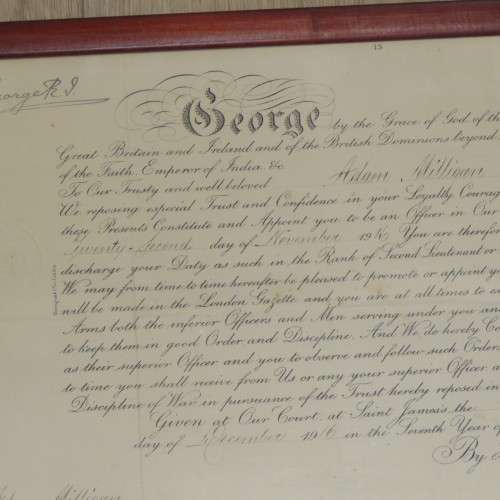 15
George R I
George by the Grace of God of th
Great Britain and Ireland and of the British Dominions beyond
of the Faith, Emperor of India, &c
To Our Trusty and well beloved Adam Milligan
We reposing especial Trust and Confidence in your Loyalty, Courag
these Presents Constitute and Appoint you to be an Officer in Our
twenty-second day of November 1916 You are therefor
discharge your Duty as such in the Rank of Second Lieutenant or
We may from time to time hereafter be pleased to promote or appoint yo
will be made in the London Gazette and you are at all times to ex
Arms both the inferior Officers and Men serving under you an
to keep them in good Order and Discipline. And We do hereby Co
as their superior Officer and you to observe and follow such Orders
to time you shall receive from Us or any your superior Officer a
Discipline of War in pursuance of the Trust hereby reposed in
Given at Our Court, at Saint James's the
day of December 1916 in the Seventh Year of
By
Milligan